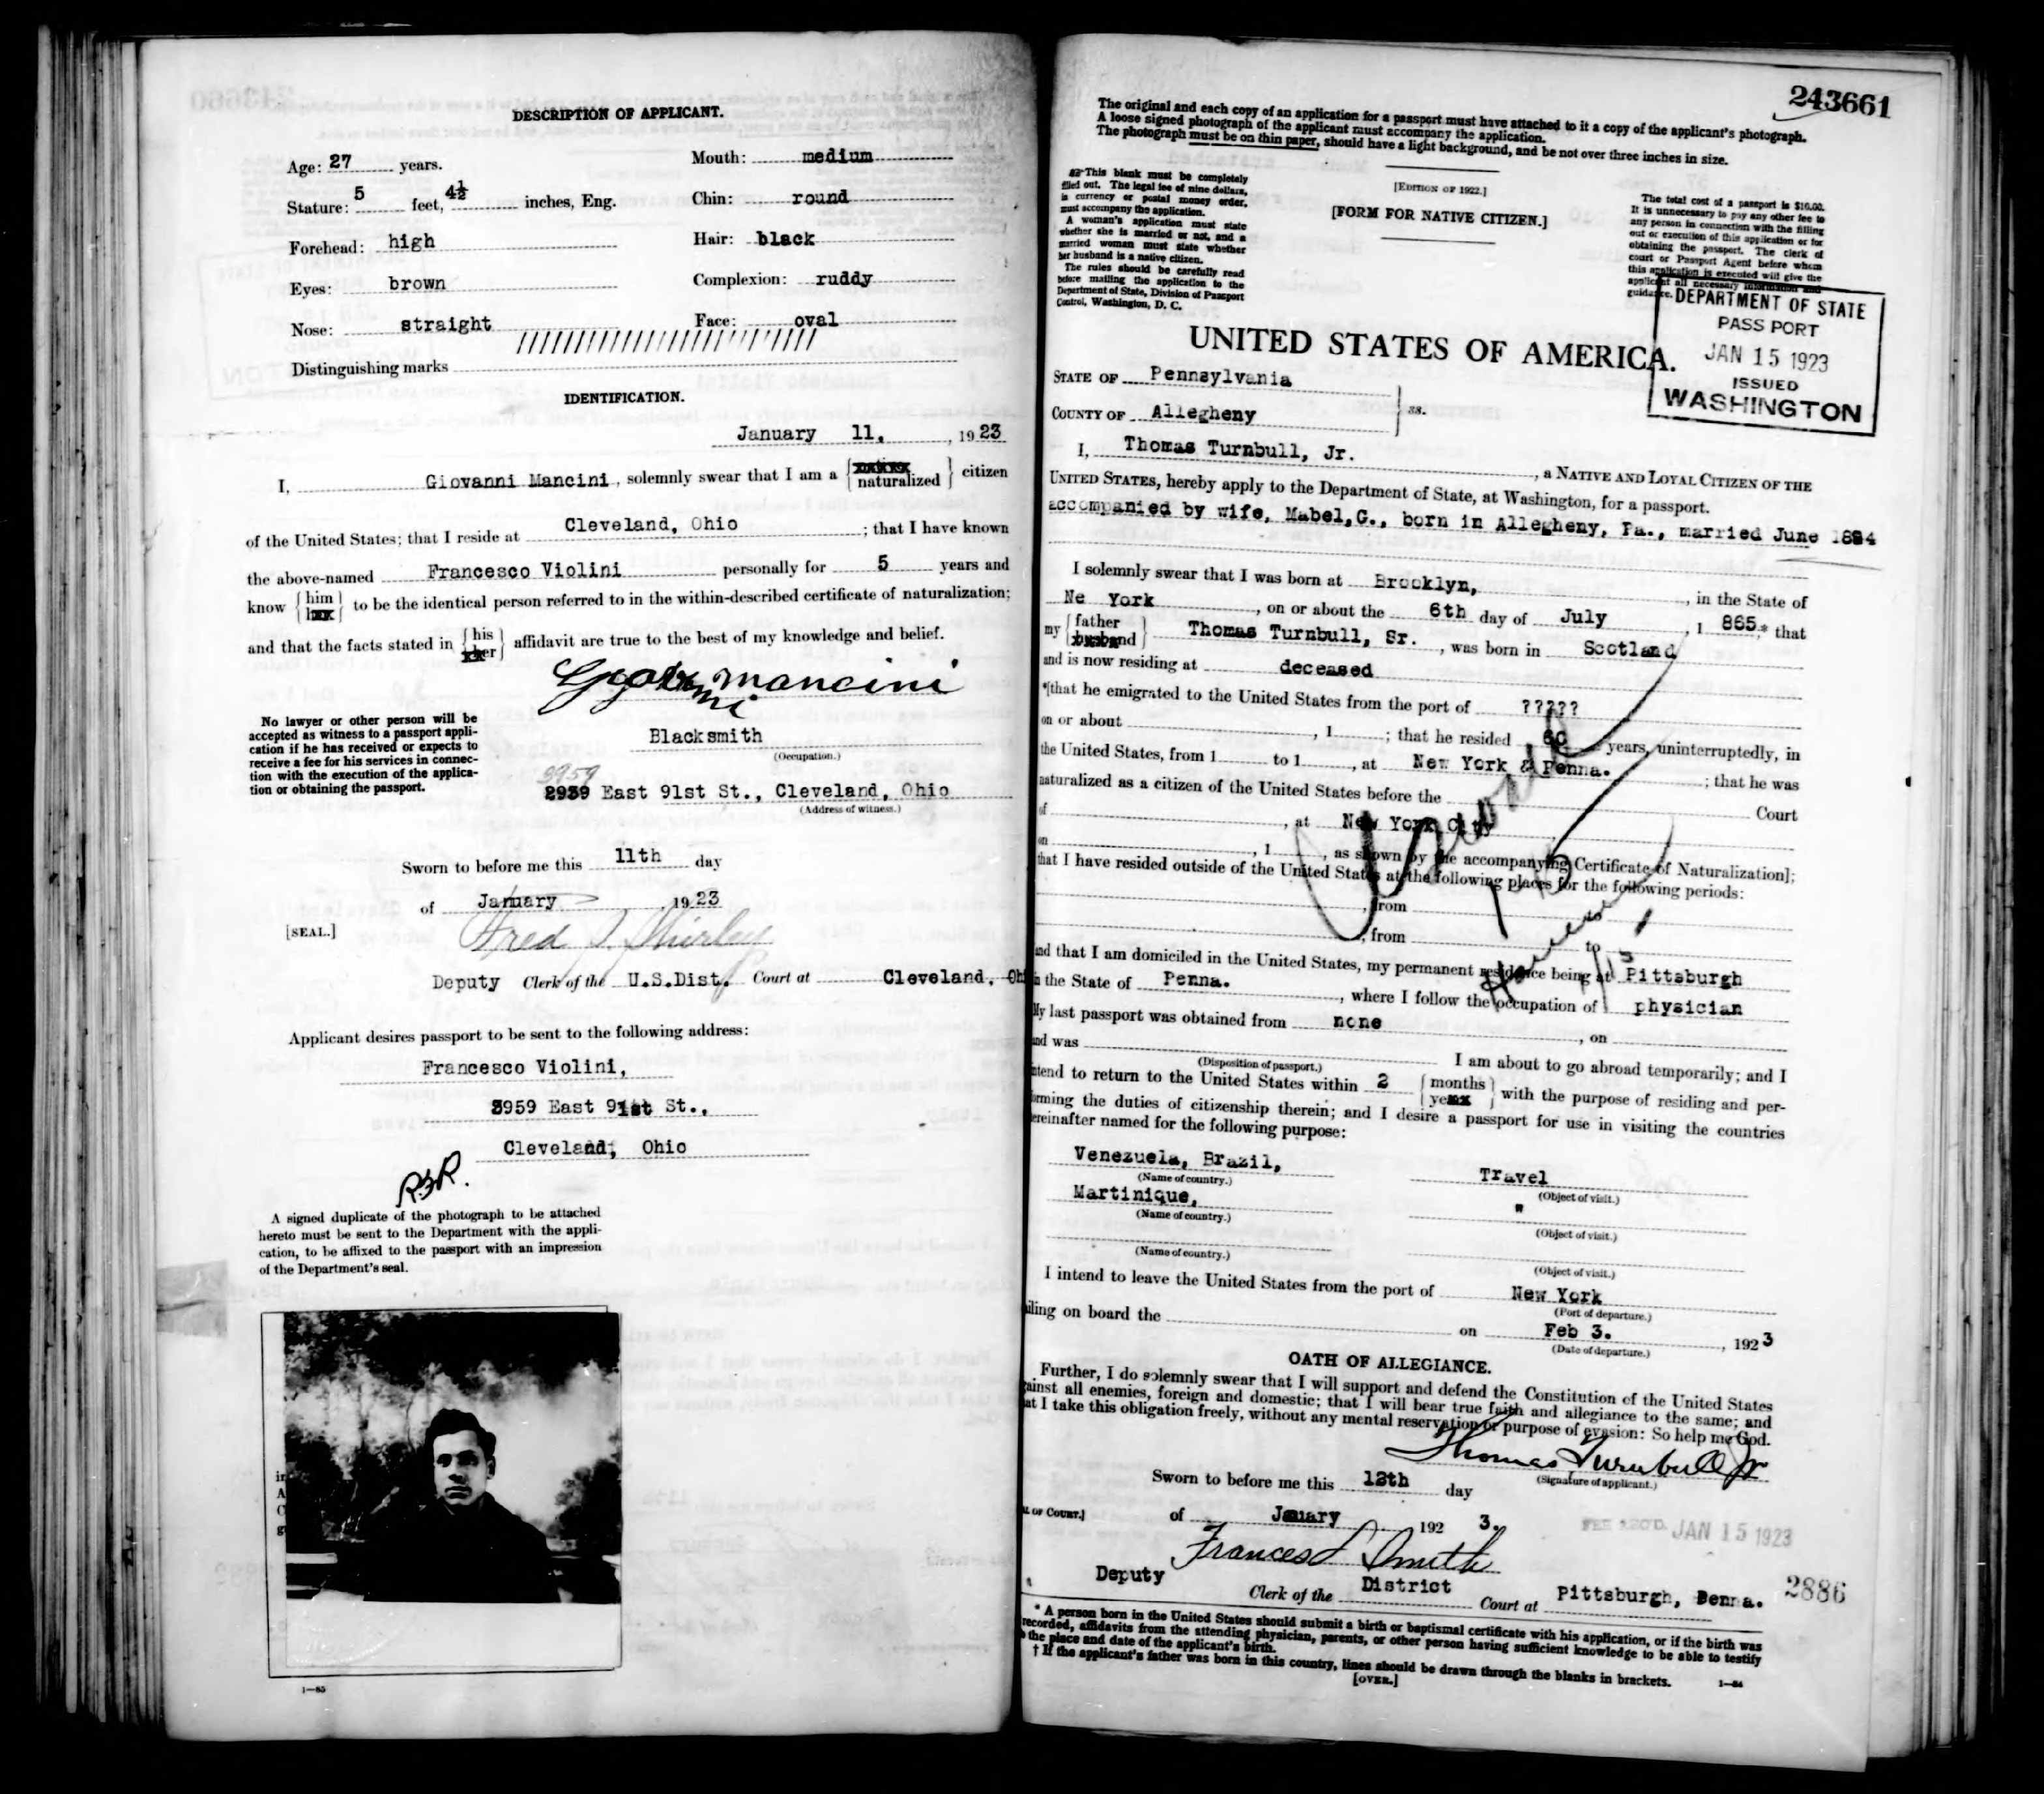 DESCRIPTION OF APPLICANT.
Age: 27 years.
Mouth: medium
Stature: 5 feet, 4½ inches, Eng.
Chin: round
Forehead: high
Hair: black
Eyes: brown
Complexion: ruddy
Nose: straight
Face: oval
Distinguishing marks
IDENTIFICATION.
January 11, , 1923
I, Giovanni Mancini, solemnly swear that I am a naturalized citizen
of the United States; that I reside at Cleveland, Ohio ; that I have known
the above-named Francesco Violini personally for 5 years and
know him to be the identical person referred to in the within-described certificate of naturalization;
and that the facts stated in his affidavit are true to the best of my knowledge and belief.
Mancini
No lawyer or other person will be
accepted as witness to a passport appli-
cation if he has received or expects to
receive a fee for his services in connec-
tion with the execution of the applica-
tion or obtaining the passport.
Blacksmith
(Occupation.)
3959
2939 East 91st St., Cleveland, Ohio
(Address of witness.)
Sworn to before me this 11th day
of January 1923
[SEAL.]
Fred J. Shirley
Deputy Clerk of the U.S.Dist. Court at Cleveland, Oh
Applicant desires passport to be sent to the following address:
Francesco Violini,
3959 East 91st St.,
Cleveland, Ohio
A signed duplicate of the photograph to be attached
hereto must be sent to the Department with the appli-
cation, to be affixed to the passport with an impression
of the Department's seal.
1—85
243661
The original and each copy of an application for a passport must have attached to it a copy of the applicant's photograph.
A loose signed photograph of the applicant must accompany the application.
The photograph must be on thin paper, should have a light background, and be not over three inches in size.
This blank must be completely
filled out. The legal fee of nine dollars,
in currency or postal money order,
must accompany the application.
A woman's application must state
whether she is married or not, and a
married woman must state whether
her husband is a native citizen.
The rules should be carefully read
before mailing the application to the
Department of State, Division of Passport
Control, Washington, D. C.
[EDITION OF 1922.]
[FORM FOR NATIVE CITIZEN.]
The total cost of a passport is $10.00.
It is unnecessary to pay any other fee to
any person in connection with the filling
out or execution of this application or for
obtaining the passport. The clerk of
court or Passport Agent before whom
this application is executed will give the
applicant all necessary information and
guidance.
DEPARTMENT OF STATE
PASS PORT
JAN 15 1923
ISSUED
WASHINGTON
UNITED STATES OF AMERICA.
STATE OF Pennsylvania
COUNTY OF Allegheny
ss.
I, Thomas Turnbull, Jr. , a NATIVE AND LOYAL CITIZEN OF THE
UNITED STATES, hereby apply to the Department of State, at Washington, for a passport.
accompanied by wife, Mabel,G., born in Allegheny, Pa., married June 1894
I solemnly swear that I was born at Brooklyn, , in the State of
Ne York , on or about the 6th day of July , 1 865,* that
my father husband Thomas Turnbull, Sr. , was born in Scotland
and is now residing at deceased
*[that he emigrated to the United States from the port of ?????
on or about , 1 ; that he resided 60 years, uninterruptedly, in
the United States, from 1 to 1 , at New York & Penna. ; that he was
naturalized as a citizen of the United States before the Court
of , at New York City
on , 1 , as shown by the accompanying Certificate of Naturalization];
that I have resided outside of the United States at the following places for the following periods:
, from to
, from to
and that I am domiciled in the United States, my permanent residence being at Pittsburgh
in the State of Penna. , where I follow the occupation of physician
My last passport was obtained from none , on
and was I am about to go abroad temporarily; and I
(Disposition of passport.)
ntend to return to the United States within 2 months with the purpose of residing and per-
orming the duties of citizenship therein; and I desire a passport for use in visiting the countries
ereinafter named for the following purpose:
Venezuela, Brazil, Travel
(Name of country.) (Object of visit.)
Martinique, "
(Name of country.) (Object of visit.)
(Name of country.) (Object of visit.)
I intend to leave the United States from the port of New York
(Port of departure.)
iling on board the on Feb 3. , 1923
(Date of departure.)
OATH OF ALLEGIANCE.
Further, I do solemnly swear that I will support and defend the Constitution of the United States
gainst all enemies, foreign and domestic; that I will bear true faith and allegiance to the same; and
at I take this obligation freely, without any mental reservation or purpose of evasion: So help me God.
Thomas Turnbull Jr
(Signature of applicant.)
Sworn to before me this 12th day
L OF COURT.]
of January 1923.
FEE REC'D. JAN 15 1923
Frances L Smith
Deputy Clerk of the District Court at Pittsburgh, Penna.
2886
* A person born in the United States should submit a birth or baptismal certificate with his application, or if the birth was
recorded, affidavits from the attending physician, parents, or other person having sufficient knowledge to be able to testify
o the place and date of the applicant's birth.
† If the applicant's father was born in this country, lines should be drawn through the blanks in brackets.
[OVER.]
1—84